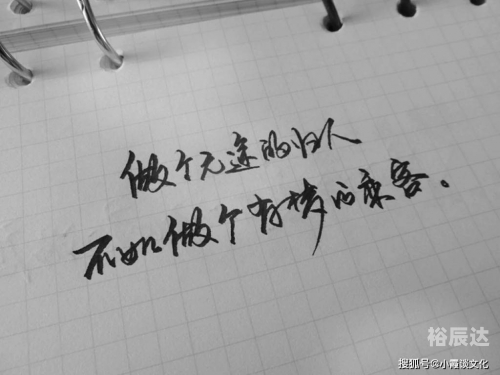 做个无途的归人
不如做个有梦的乘客。
裕辰达
搜狐号@小霞谈文化